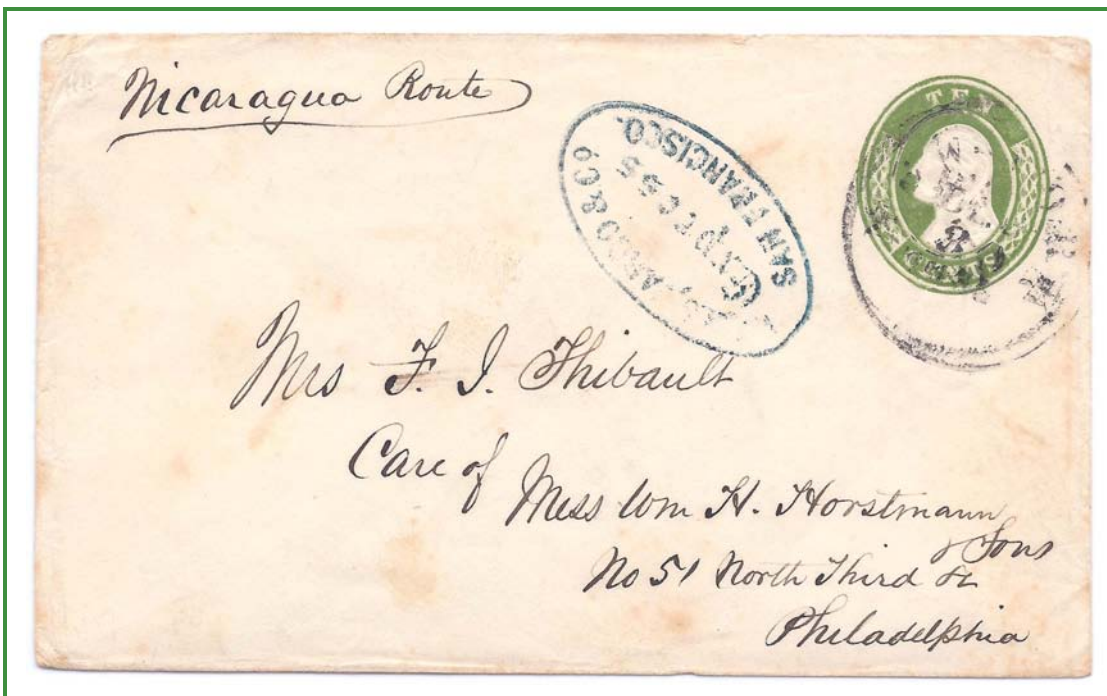 Nicaragua Route
TEN
CENTS
ARGO & Co
Express
SAN FRANCISCO.
Mrs F. J. Thibault
Care of
Mess Wm H. Horstmann
& Sons
No 51 North Third St
Philadelphia